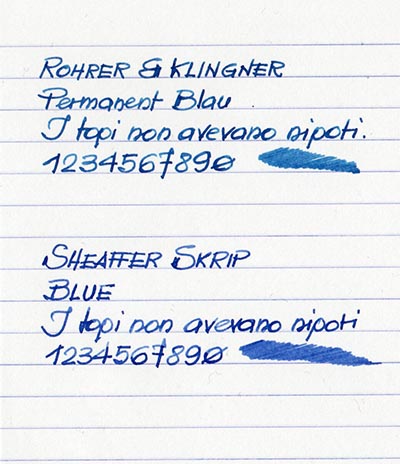 ROHRER & KLINGNER
Permanent Blau
I topi non avevano nipoti.
1234567890
SHEAFFER SKRIP
BLUE
I topi non avevano nipoti
1234567890